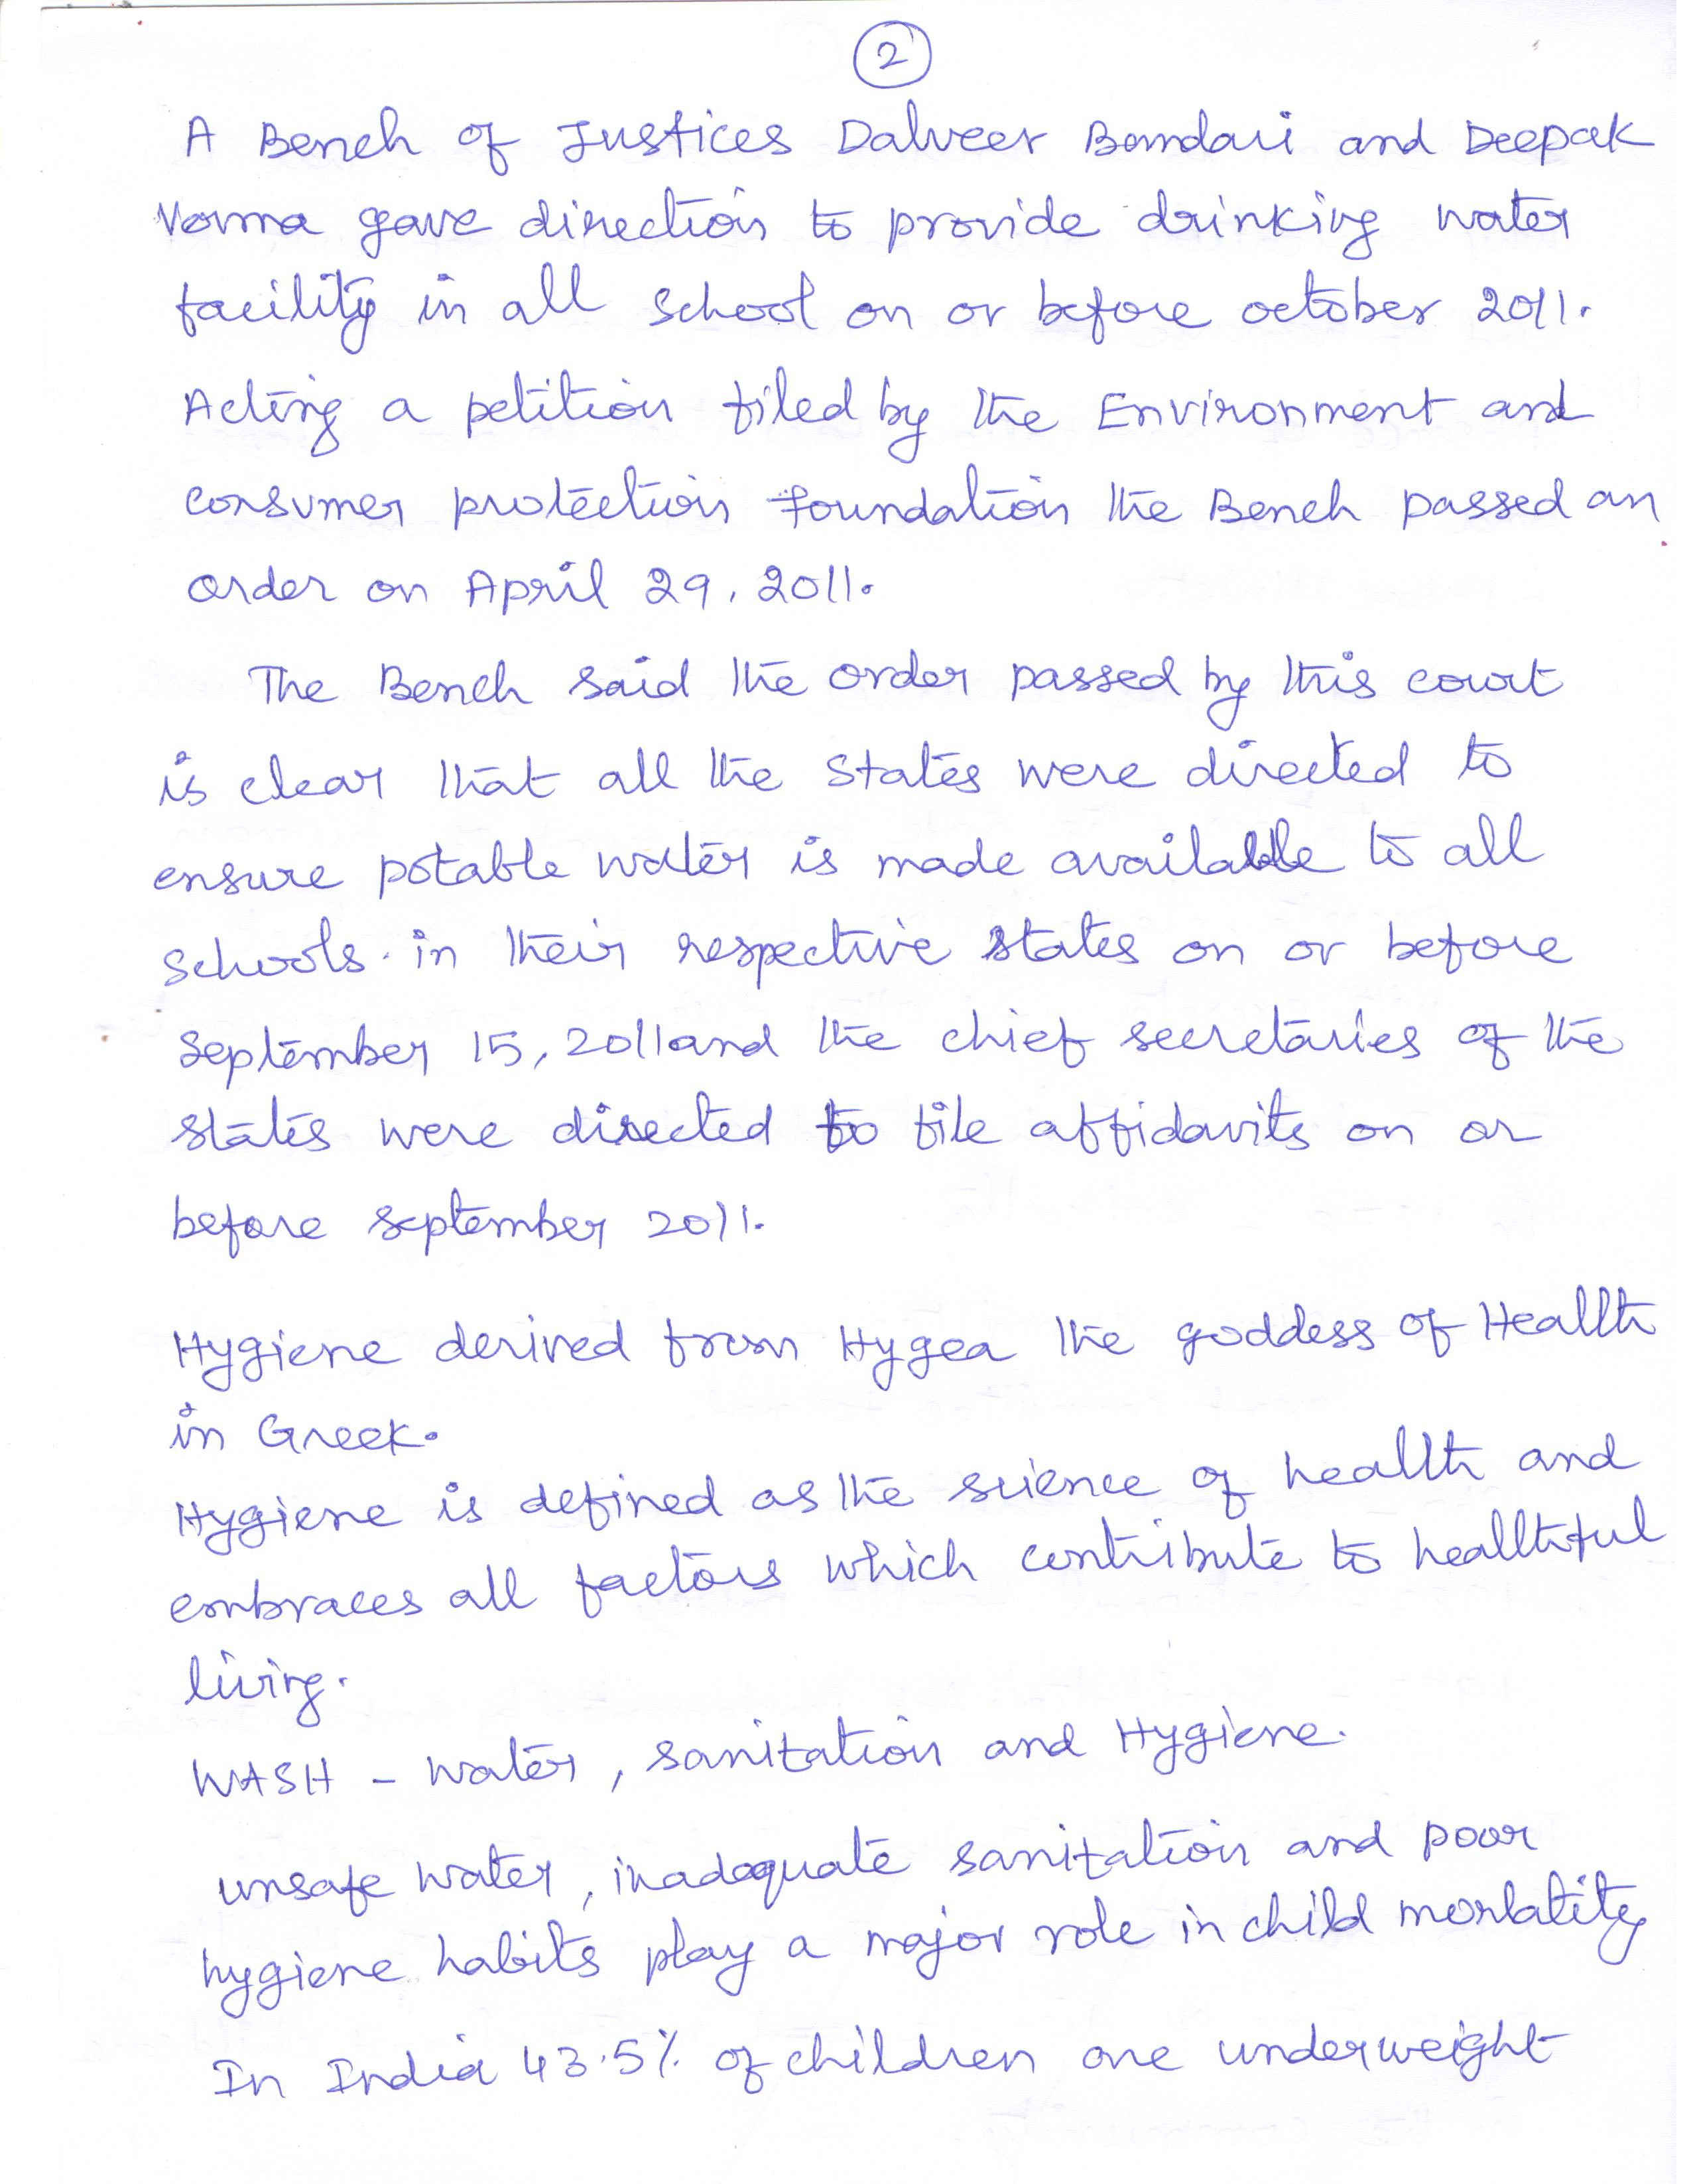 2
A Bench of Justices Dalveer Bandari and Deepak
Verma gave direction to provide drinking water
facility in all school on or before october 2011.
Acting a petition filed by the Environment and
consumer protection foundation the Bench passed an
order on April 29, 2011.
The Bench said the order passed by this court
is clear that all the states were directed to
ensure potable water is made available to all
schools in their respective states on or before
September 15, 2011 and the chief secretaries of the
states were directed to file affidavits on or
before september 2011.
Hygiene derived from Hygea the goddess of Health
in Greek.
Hygiene is defined as the science of health and
embraces all factors which contribute to healthful
living.
WASH - Water, sanitation and Hygiene.
unsafe water, inadequate sanitation and poor
hygiene habits play a major role in child mortality
In India 43.5% of children are underweight